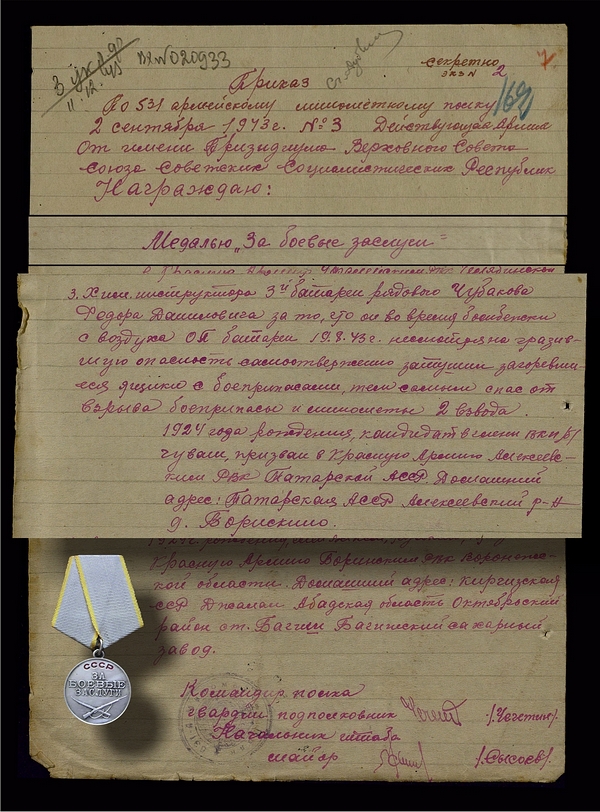 3 ук 290
11.12.43
Вх № 020933
Секретно
экз № 2
7
162
Приказ
По 531 армейскому миномётному полку
2 сентября 1943 г. № 3 Действующая Армия
От имени Президиума Верховного Совета
Союза Советских Социалистических Республик
Награждаю:
Медалью „За боевые заслуги"
3. Хим. инструктора 3й батареи рядового Чубакова
Федора Даниловича за то, что он во время бомбежки
с воздуха ОП батареи 19.8.43 г. несмотря на грозив-
шую опасность самоотвержено затушил загоревши-
еся ящики с боеприпасами, тем самым спас от
взрыва боеприпасы и минометы 2 взвода.
1924 года рождения, кандидат в члены ВКП/б/
чуваш, призван в Красную Армию Алексеев-
ским РВК Татарской АССР. Домашний
адрес: Татарская АССР Алексеевский р-н
д. Борискино.
Красную Армию Боринским РВК Воронежс-
кой области. Домашний адрес: Киргизская
ССР Джалал Абадская область Октябрьский
район ст. Багиш Багишский сахарный
завод.
Командир полка
гвардии подполковник /Чегетин/
Начальник штаба
майор /Сысоев/
СССР
ЗА
БОЕВЫЕ
ЗАСЛУГИ